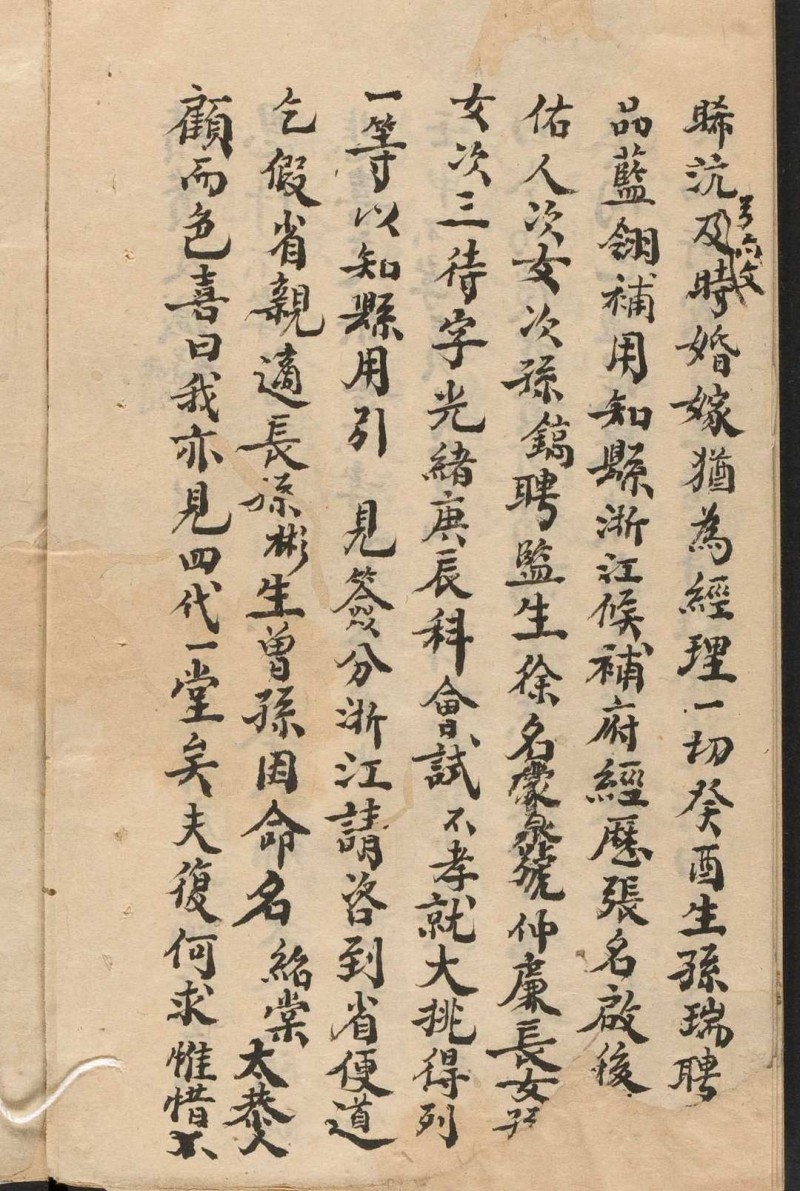 睎沆及時婚嫁猶為經理一切癸酉生孫瑞聘
品藍翎補用知縣浙江候補府經歷張名啟後
佑人次女次孫鎬聘監生徐名慶泉號仲廉長女
女次三待字光緒庚辰科會試不孝就大挑得列
一等以知縣用引 見簽分浙江請咨到省便道
乞假省親適長孫彬生曾孫因命名紹棠太恭人
顧而色喜曰我亦見四代一堂矣夫復何求惟惜不